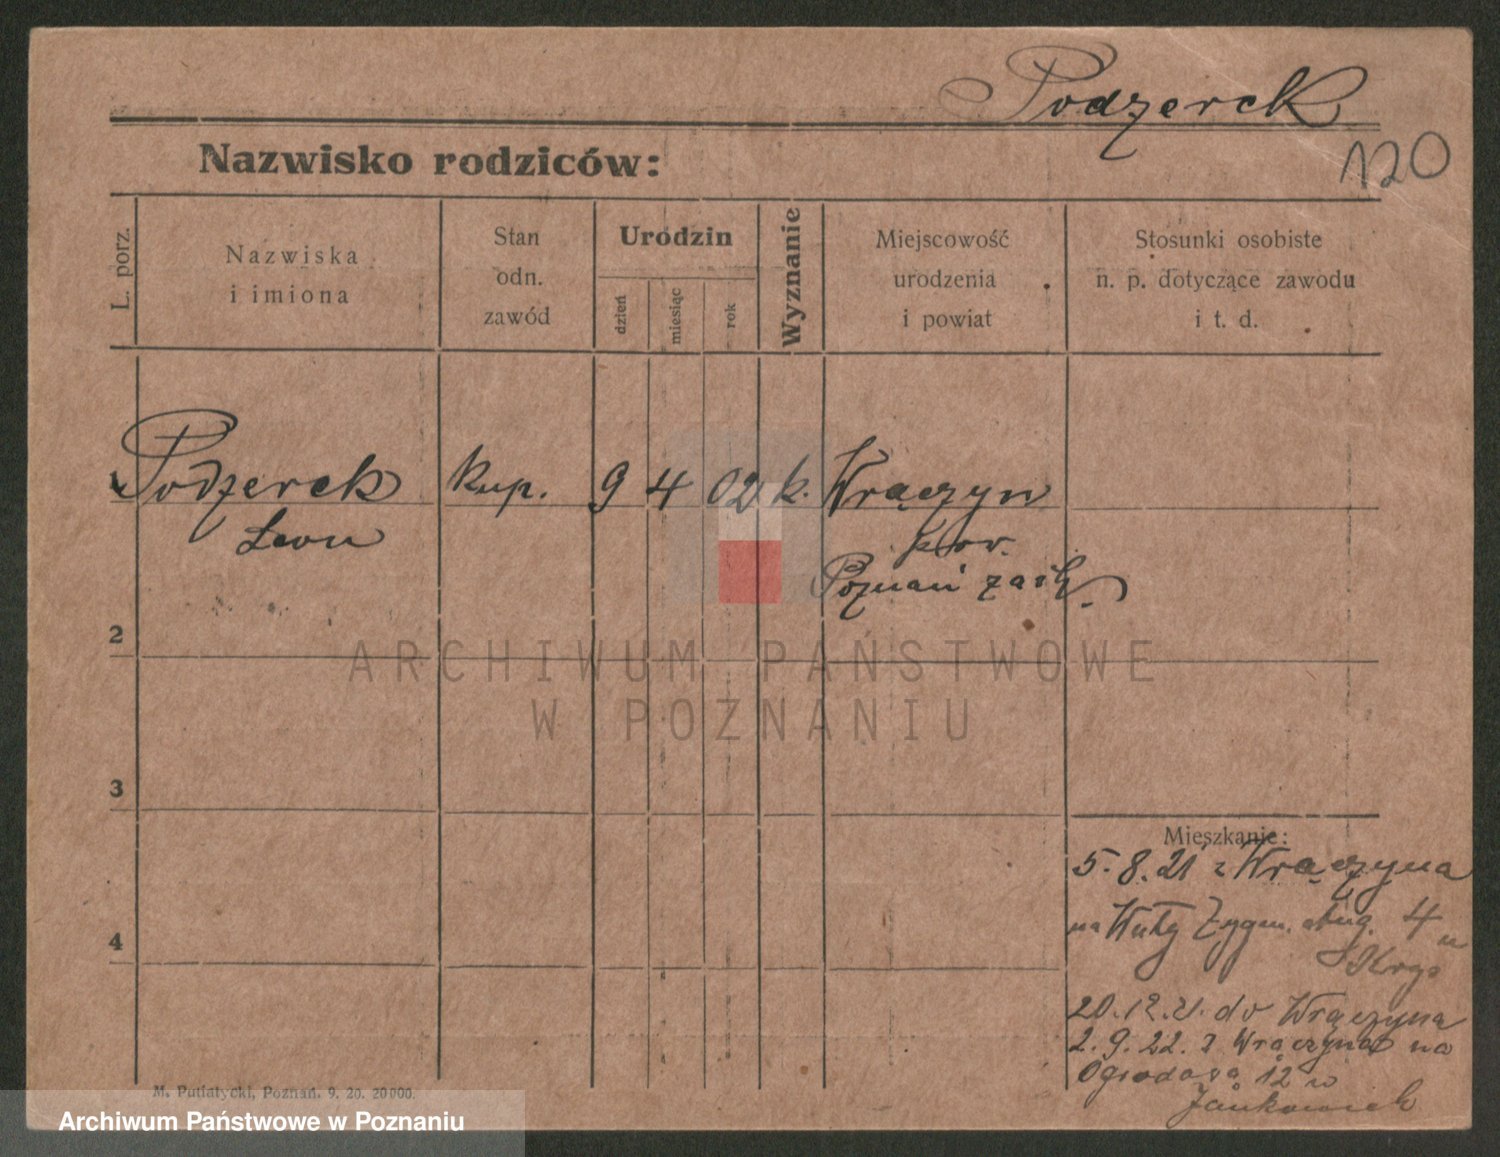 Podzerek
120
Nazwisko rodziców:
L. porz.
Nazwiska
i imiona
Stan
odn.
zawód
Urodzin
dzień
miesiąc
rok
Wyznanie
Miejscowość
urodzenia
i powiat
Stosunki osobiste
n. p. dotyczące zawodu
i t. d.
1 Podzerek kup. 9 4 02 k. Wrączyn
Leon
pow.
Poznań zach.
2
ARCHIWUM PAŃSTWOWE
W POZNANIU
3
4
Mieszkanie:
5.8.21 z Wrączyna
na Zygm. Aug. 4 u
20.12.21. do Wrączyna
2.9.22. z Wrączyna na
Ogrodową 12 u
M. Putiatycki, Poznań. 9. 20. 20000.
Archiwum Państwowe w Poznaniu